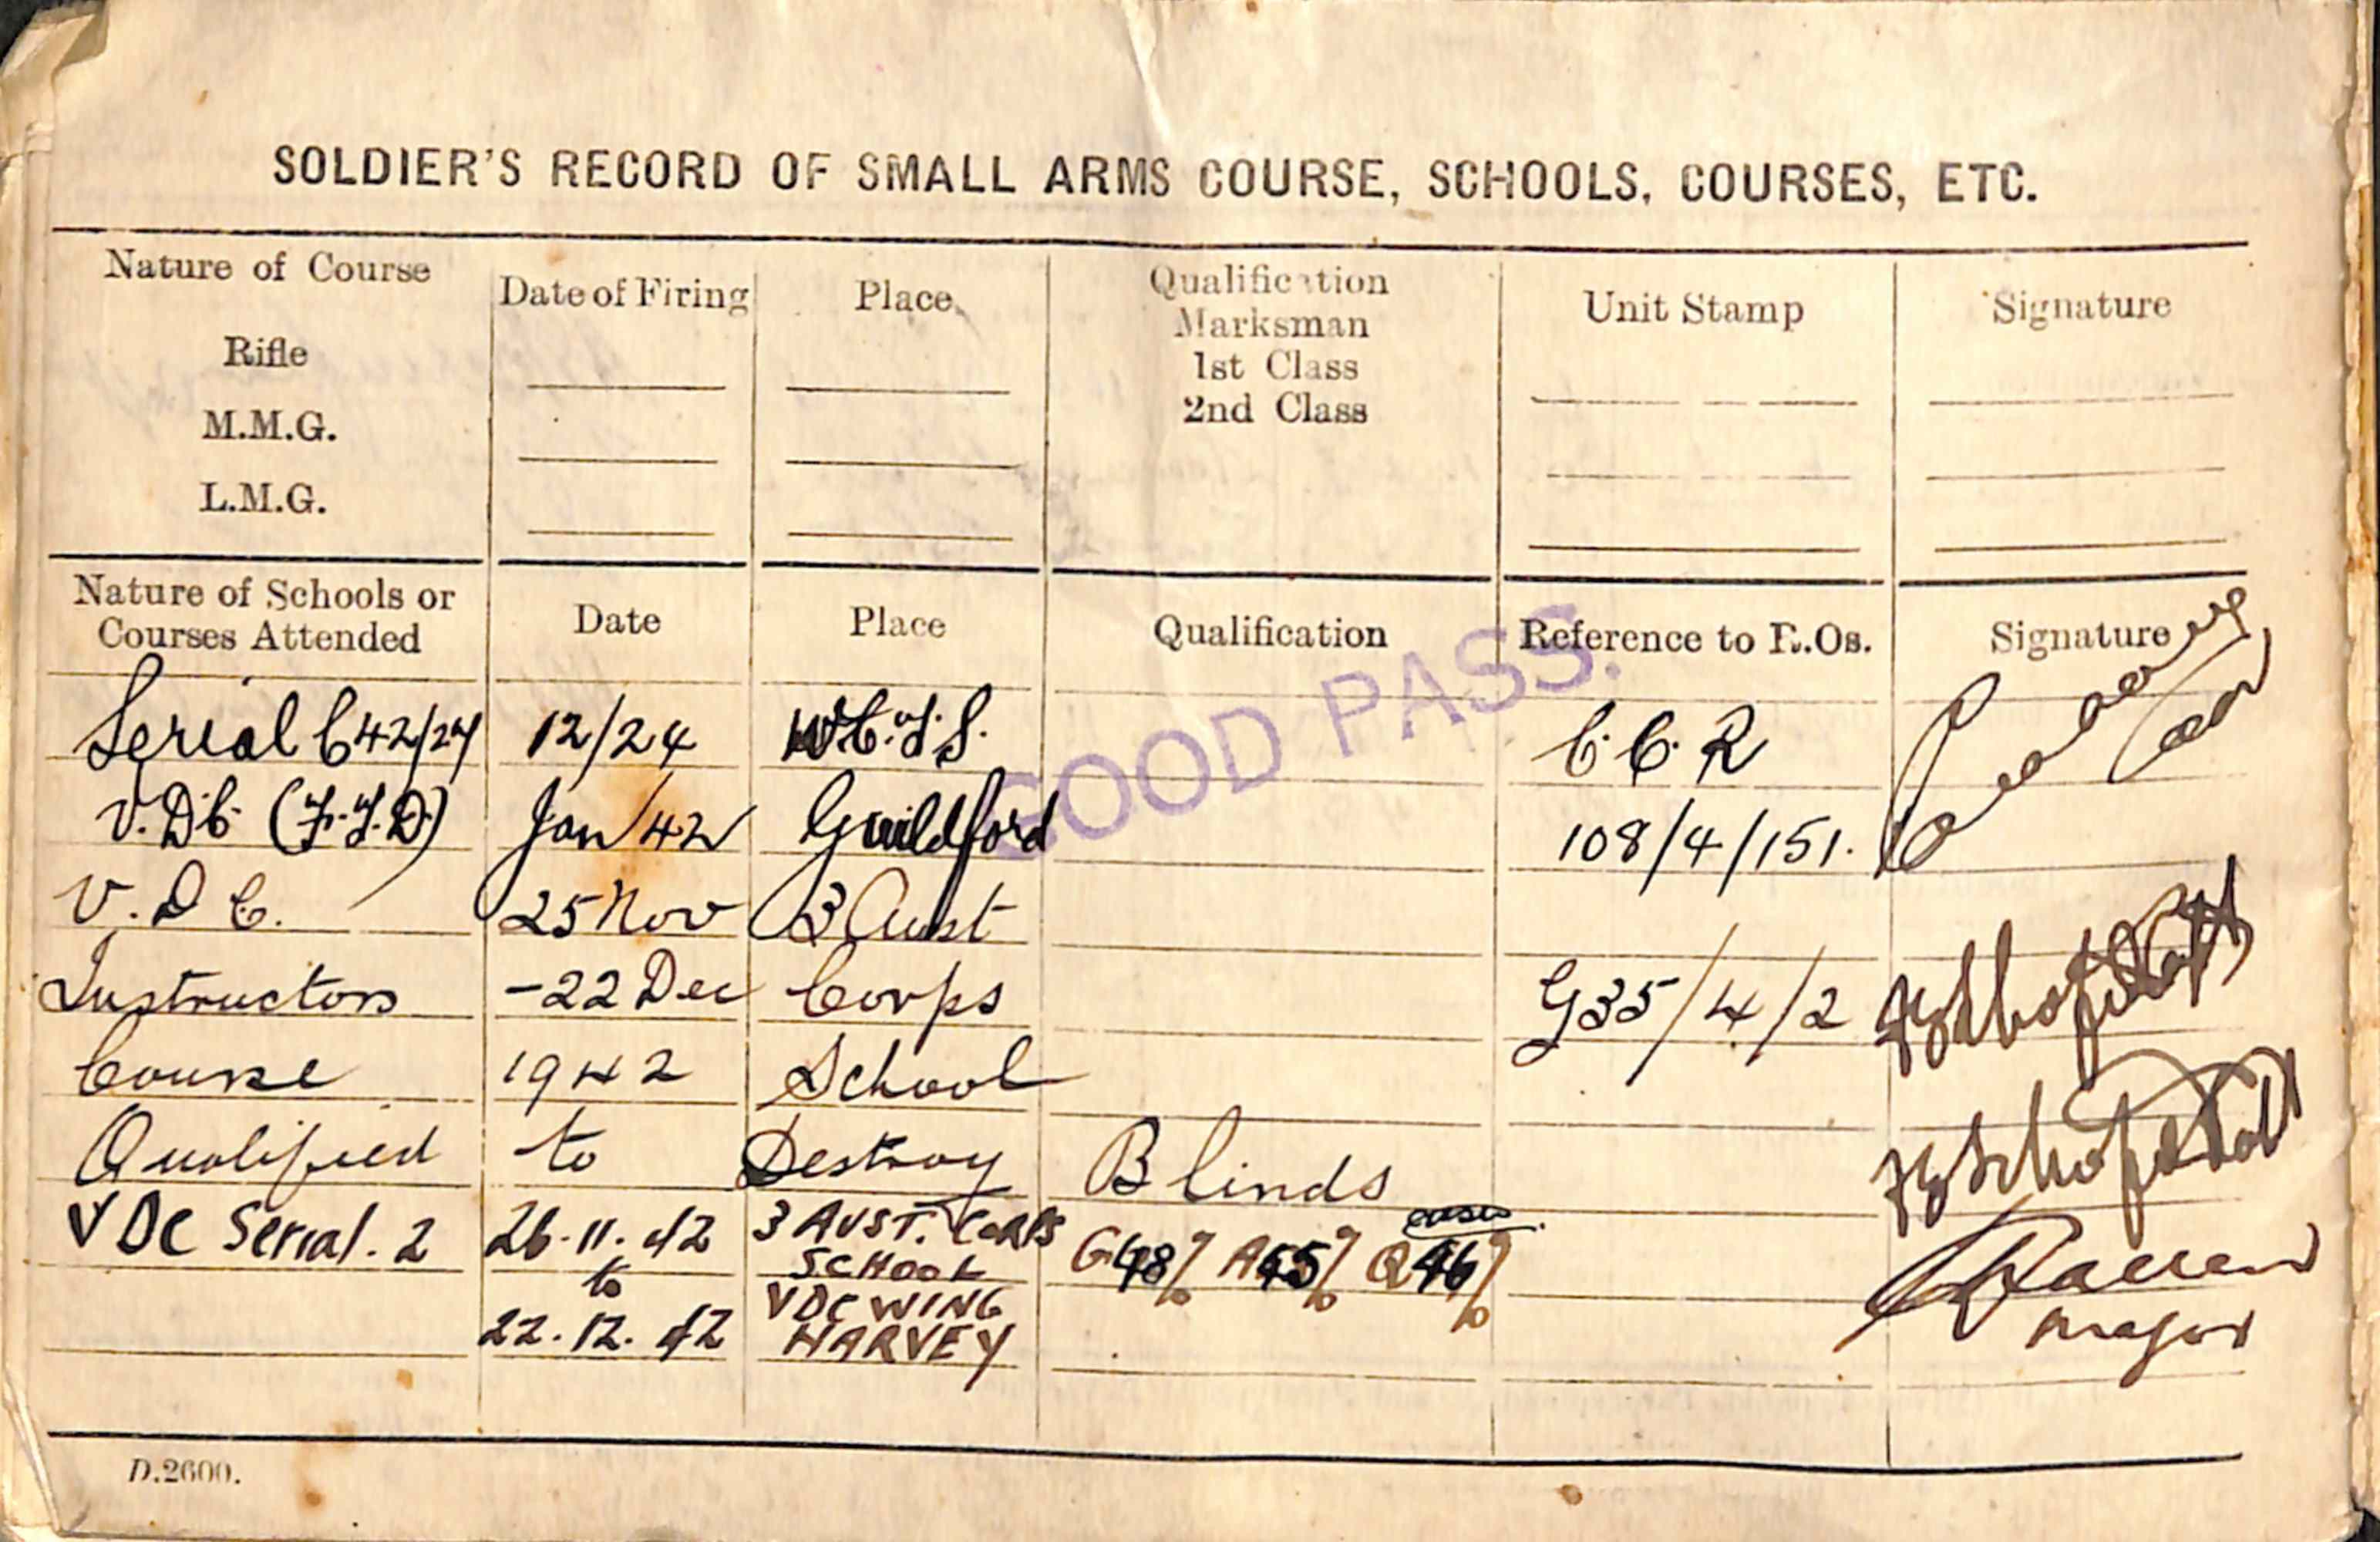 SOLDIER'S RECORD OF SMALL ARMS COURSE, SCHOOLS, COURSES, ETC.
Nature of Course Date of Firing Place Qualification Unit Stamp Signature
Marksman
Rifle 1st Class
M.M.G. 2nd Class
L.M.G.
Nature of Schools or Courses Attended Date Place Qualification Reference to R.Os. Signature
GOOD PASS.
Serial C42/24 12/24 W.C.of.S. C.C.R
V.D.C. Jan 42 Guildford 108/4/151.
V.D.C. 25 Nov 3 Aust
Instructors -22 Dec Corps G35/4/2
Course 1942 School
Qualified to Destroy Blinds
VDC Serial. 2 26.11.42 3 AUST. CORPS G48% A45% Q46%
to SCHOOL
VDC WING
22.12.42 HARVEY Major
D.2600.